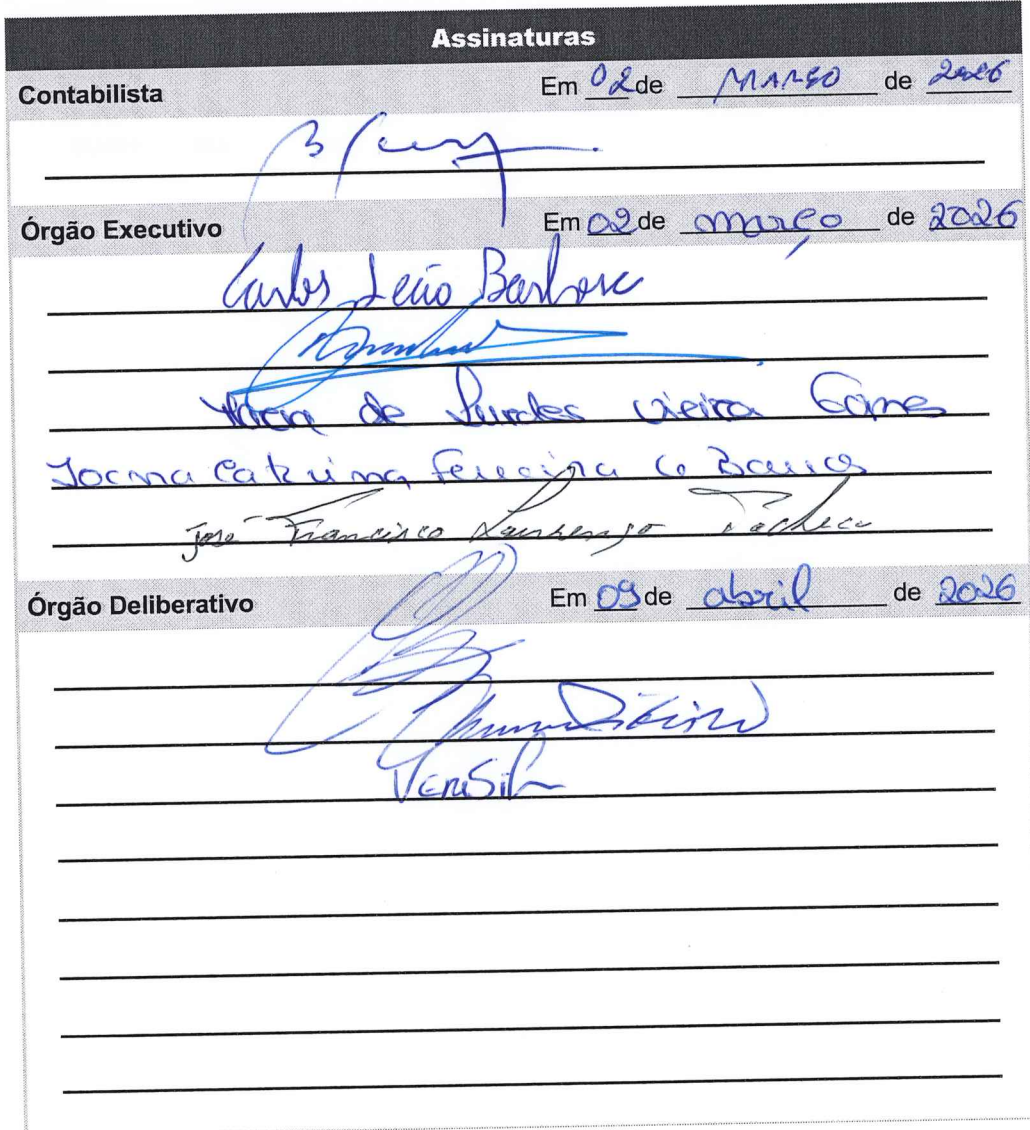 Assinaturas
Contabilista Em 02 de MARÇO de 2026
Órgão Executivo Em 02 de março de 2026
Carlos Leão Barbosa
Maria de Lurdes Vieira Gomes
Joana Catarina Ferreira de Barros
José Francisco Lourenço Pacheco
Órgão Deliberativo Em 09 de abril de 2026